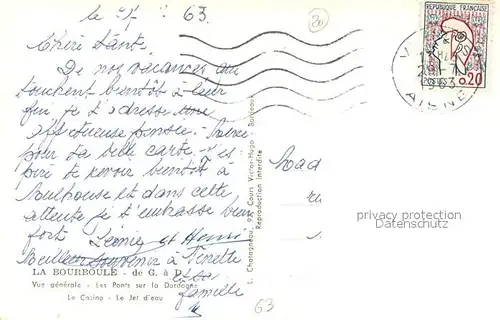 le 63.
20
Chère Tante.
De nos vacances qui
touchent bientôt à leur
fin je t'adresse une
affectueuse pensée. Merci
pour ta belle carte. J'es-
père te revoir bientôt à
Mulhouse et dans cette
attente je t'embrasse bien
fort Léonie et Henri
Meilleur souvenir à Ninette
famille
LA BOURBOULE - de G. à D.
Vue générale - Les Ponts sur la Dordogne
Le Casino - Le Jet d'eau
L. Chatagneau, 92, Cours Victor-Hugo - Bordeaux
Reproduction interdite
REPUBLIQUE FRANÇAISE
POSTES 0,20
1963
Mad
privacy protection
data protection
63